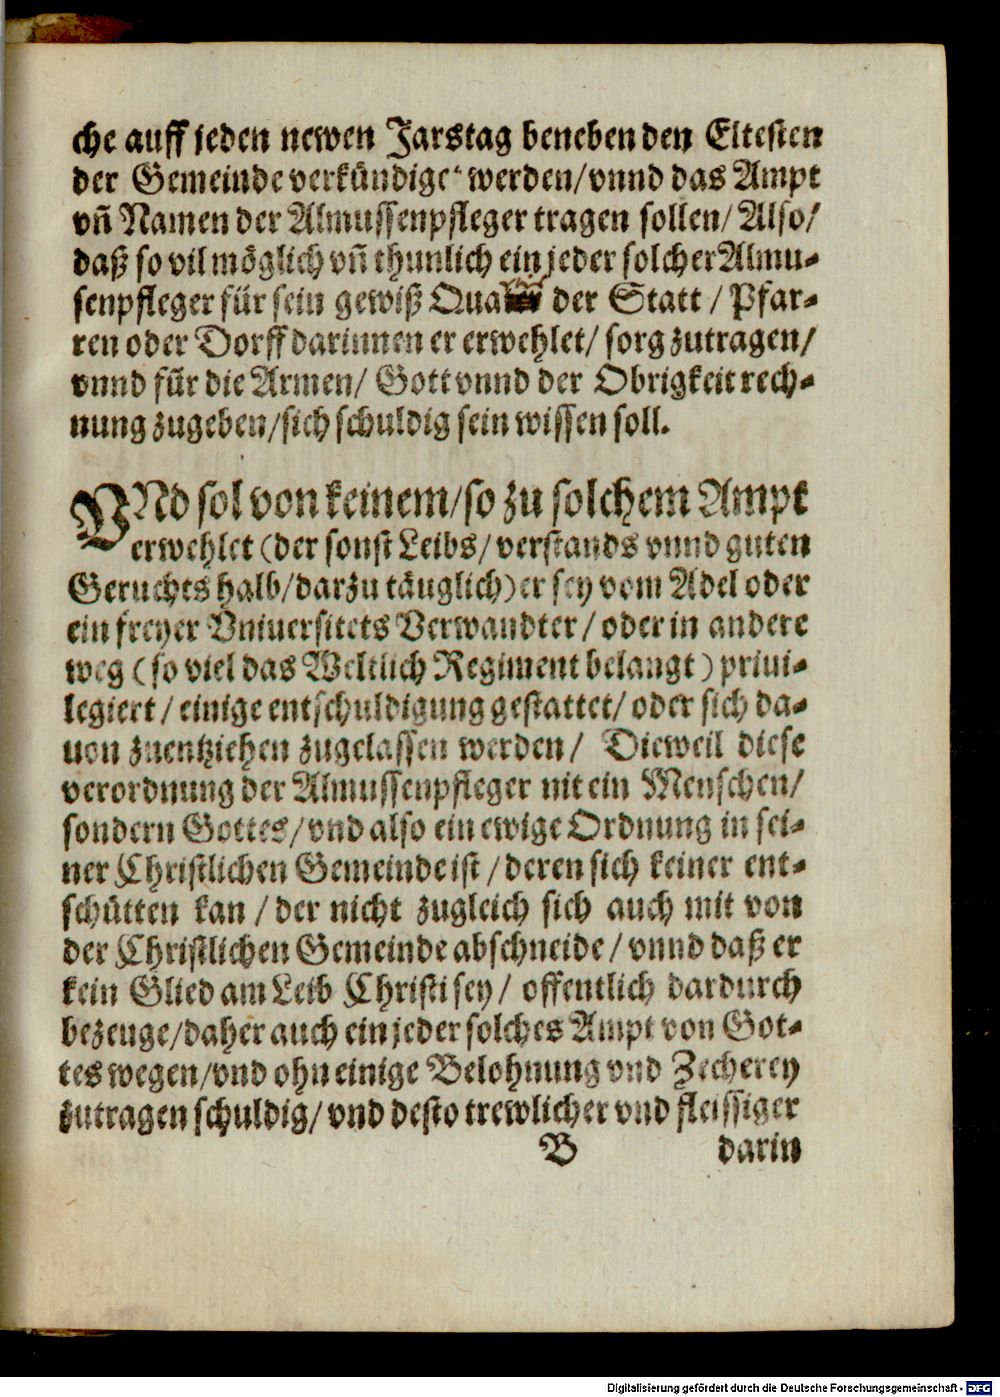 che auff jeden newen Jarstag beneben den Eltesten
der Gemeinde verkündiget werden/vnnd das Ampt
vñ Namen der Almussenpfleger tragen sollen/ Also/
daß so vil möglich vñ thunlich ein jeder solcher Almu-
senpfleger für sein gewiß der Statt / Pfar-
ren oder Dorff darinnen er erwehlet/ sorg zutragen/
vnnd für die Armen/ Gott vnnd der Obrigkeit rech-
nung zugeben/sich schuldig sein wissen soll.
VNd sol von keinem/so zu solchem Ampt
erwehlet (der sonst Leibs/verstands vnnd guten
Geruchts halb/darzu täuglich) er sey vom Adel oder
ein freyer Vniuersitets Verwandter / oder in andere
weg (so viel das Weltlich Regiment belangt) priui-
legiert / einige entschuldigung gestattet/ oder sich da-
uon zuentziehen zugelassen werden/ Dieweil diese
verordnung der Almussenpfleger nit ein Menschen/
sondern Gottes/vnd also ein ewige Ordnung in sei-
ner Christlichen Gemeinde ist / deren sich keiner ent-
schütten kan / der nicht zugleich sich auch mit von
der Christlichen Gemeinde abschneide / vnnd daß er
kein Glied am Leib Christi sey/ offentlich dardurch
bezeuge/daher auch ein jeder solches Ampt von Got-
tes wegen/vnd ohn einige Belohnung vnd Zecherey
zutragen schuldig/ vnd desto trewlicher vnd fleissiger
B darin
Digitalisierung gefördert durch die Deutsche Forschungsgemeinschaft - DFG